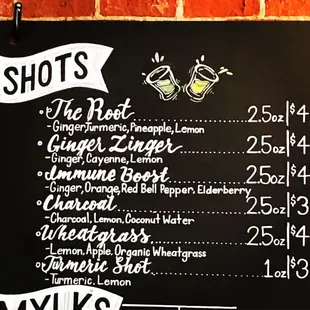 SHOTS
•The Root........2.5oz|$4
-Ginger,Turmeric, Pineapple, Lemon
•Ginger Zinger........2.5oz|$4
-Ginger, Cayenne, Lemon
•Immune Boost........2.5oz|$4
-Ginger, Orange, Red Bell Pepper. Elderberry
•Charcoal........2.5oz|$3
-Charcoal, Lemon, Coconut Water
•Wheatgrass........2.5oz|$4
-Lemon, Apple, Organic Wheatgrass
•Turmeric Shot........1oz|$3
-Turmeric, Lemon
MYLKS